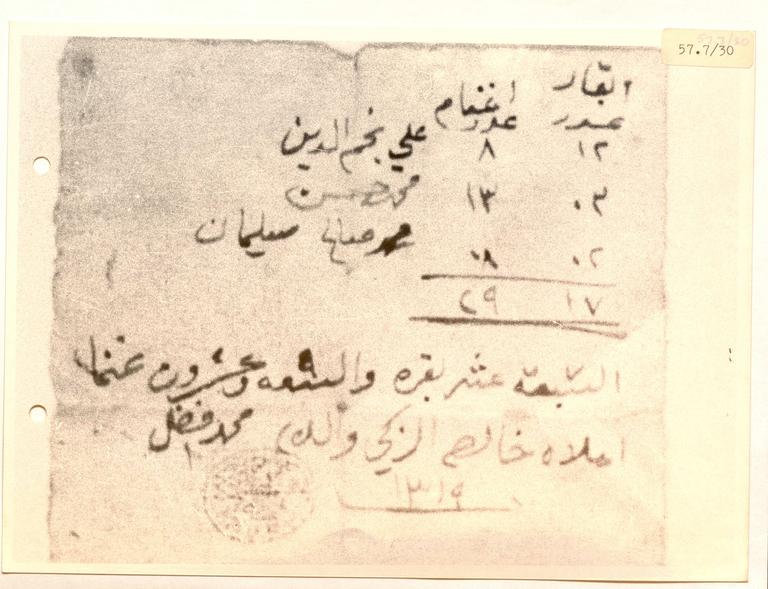 57.7/30
ابقار اغنام
عدد عدد
١٢ ٨ علي نجم الدين
٠٣ ١٣ محمد حسن
٠٢ ٠٨ محمد صالح سليمان
١٧ ٢٩
السبعة عشر بقره والتسعه وعشرون غنما
املاه خالص الزكي والدي محمد فضل
١٣١٩